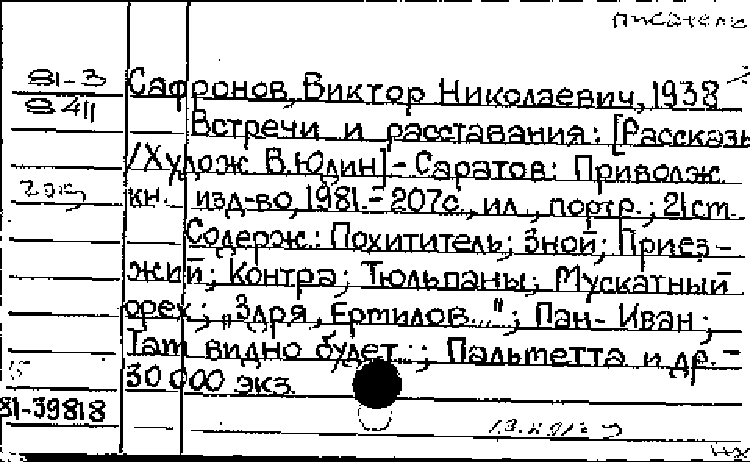 писатель
81-3 Сафронов, Виктор Николаевич, 1938
С 411
Встречи и расставания: [Рассказы
/Худож. В. Юдин] - Саратов: Приволж.
2 экз кн. изд-во, 1981. - 207с., ил., портр.; 21см.
Содерж.: Похититель; Зной; Приез-
жий; Контра; Тюльпаны; Мускатный
орех; „Здря, Ертилов..."; Пан-Иван;
Там видно будет...; Пальметта и др. -
30 000 экз.
81-39818